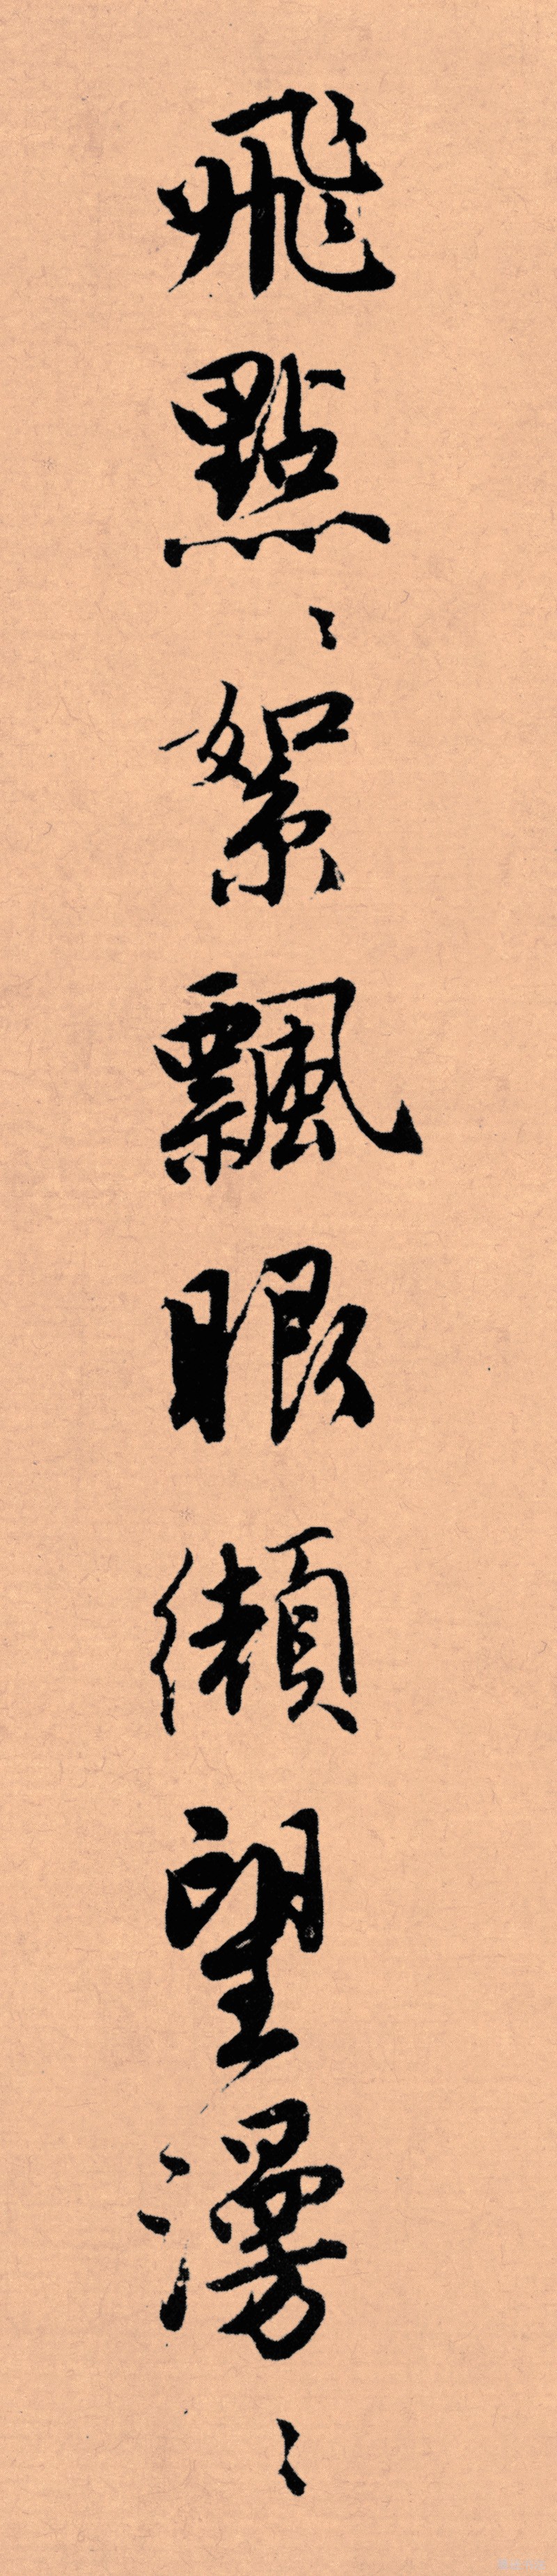 飛點〻絮飄眼纈望漫〻